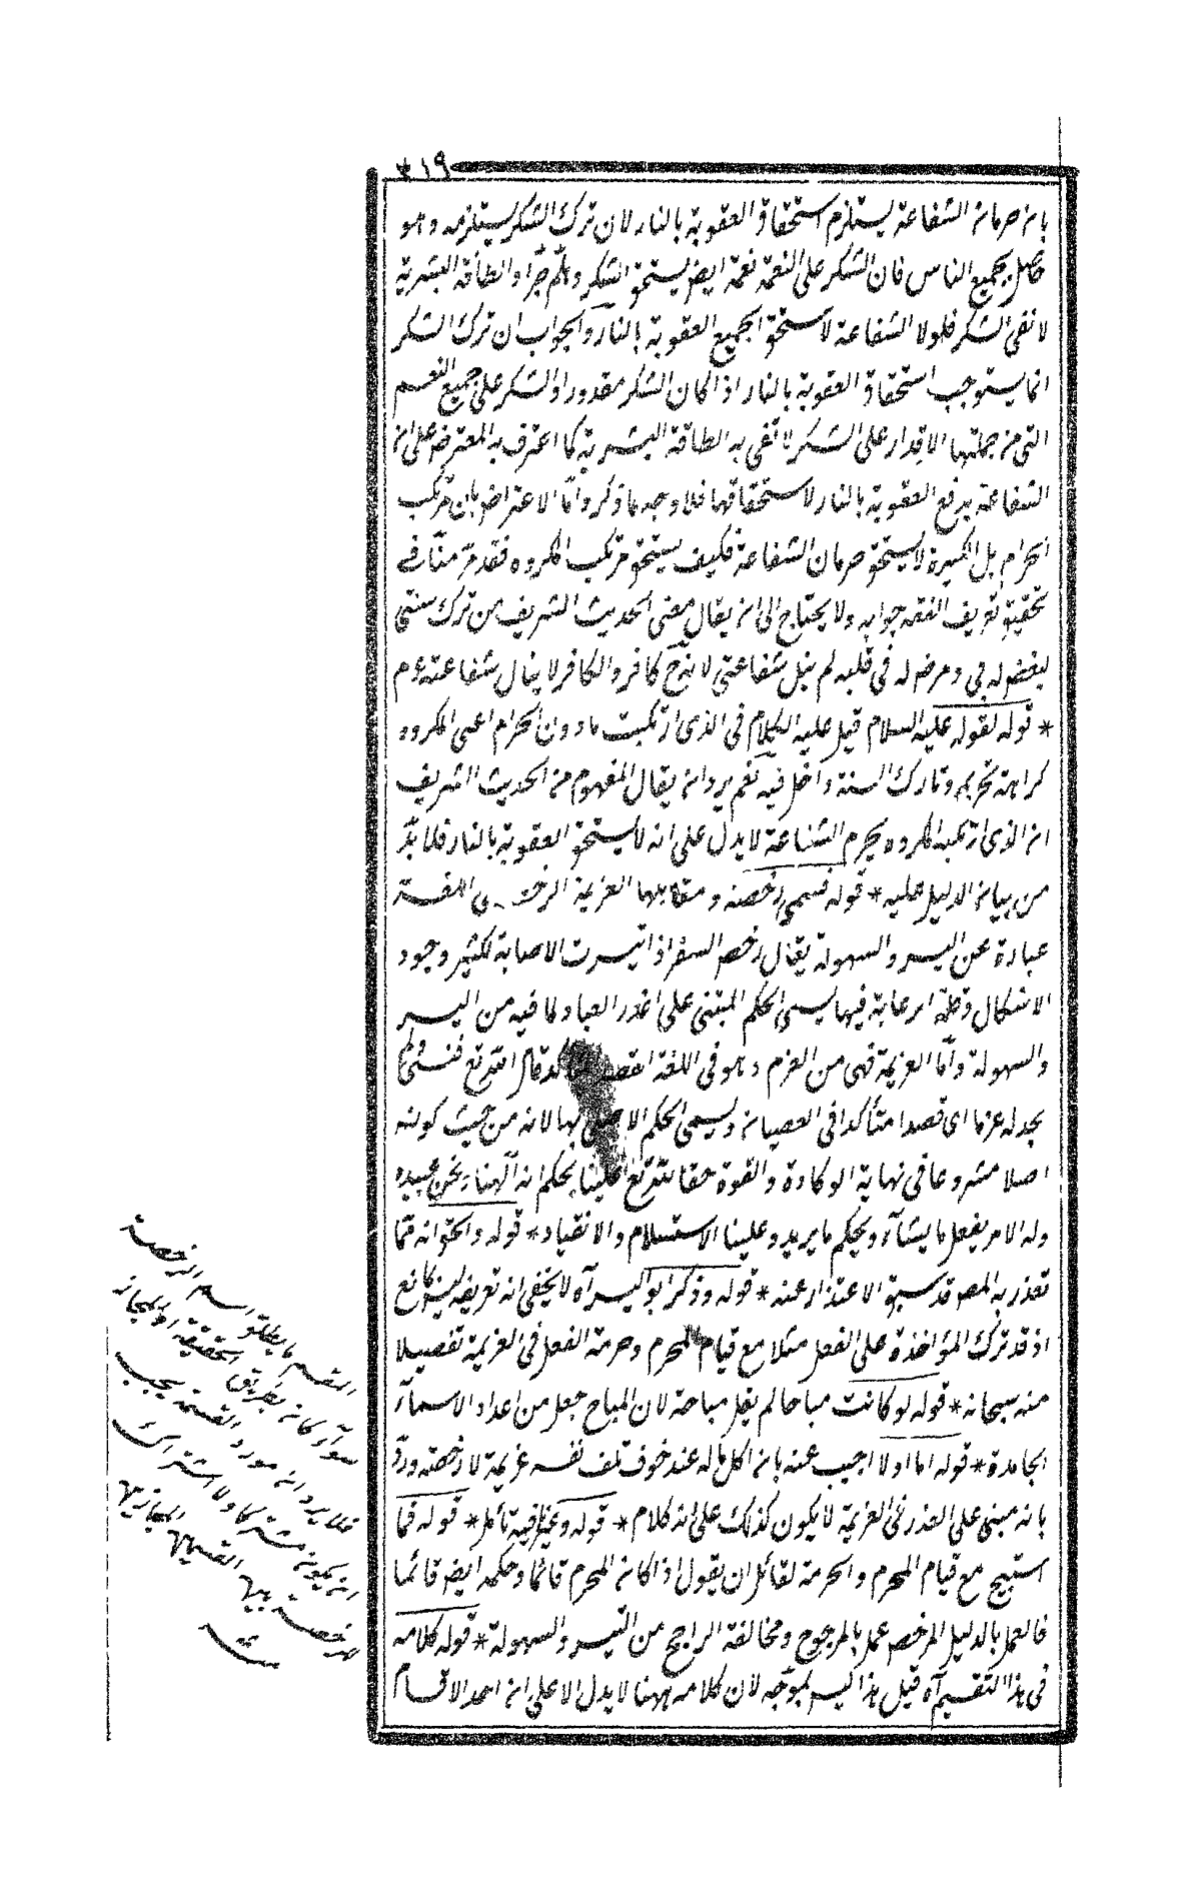 ٣١٩
بان حرمان الشفاعة يستلزم استحقاق العقوبة بالنار لان ترك الشكر يستلزمه وهو
حاصل بجميع الناس فان الشكر على النعمة نعمة ايض يستحق الشكر وهلم جرا والطاقة البشرية
لا تفى الشكر فلولا الشفاعة لاستحق الجميع العقوبة بالنار والجواب ان ترك الشكر
انما يستوجب استحقاق العقوبة بالنار اذا كان الشكر مقدورا والشكر على جميع النعم
التى من جملتها الاقدار على الشكر لا تفى به الطاقة البشرية كما اعترف به المعترض على ان
الشفاعة يدفع العقوبة بالنار لاستحقاقها فلا وجه ما ذكر واما الاعتراض بان مرتكب
الحرام بل الكبيرة لا يستحق حرمان الشفاعة فكيف يستحق مرتكب المكروه فقد مر منا فى
تحقيق تعريف الفقه جوابه ولا يحتاج الى ان يقال معنى الحديث الشريف من ترك سنتى
لبغض له بى ومرض له فى قلبه لم ينل شفاعتى لانه ح كافر والكافر لا ينال شفاعته عم
* قوله لقوله عليه السلام قيل عليه الكلام فى الذى ارتكبت ما دون الحرام اعنى المكروه
كراهة تحريم وتارك السنة داخل فيه نعم يرد ان يقال المفهوم من الحديث الشريف
ان الذى ارتكبه المكروه يحرم الشفاعة لا يدل على انه لا يستحق العقوبة بالنار فلا بد
من بيان الدليل عليه * قوله فسمى رخصة ومقابلها العزيمة الرخصة فى اللغة
عبارة عن اليسر والسهولة يقال رخص السفر اذا تيسرت الاصابة لكثير وجود
الاشكال وقلة الرعاية فيها يسمى الحكم المبتنى على اعذار العباد لما فيه من اليسر
والسهولة واما العزيمة فهى من العزم وهو فى اللغة القصد المتأكد قال الله تع فنسى ولم
نجد له عزما اى قصدا متأكدا فى العصيان ويسمى الحكم الاصلى بها لانه من حيث كونه
اصلا مشروعا فى نهاية الوكادة والقوة حقا لله تع علينا بحكم انه آلهنا ونحن عبيده
وله الامر يفعل ما يشاء ويحكم ما يريد وعلينا الاستسلام والانقياد * قوله والحق انه مما
تعذر به المص قد سبق الاعتذار عنه * قوله وذكر ابو اليسر آه لا يخفى ان تعريفه ليس بمانع
اذ قد ترك المؤاخذة على الفعل مثلا مع قيام المحرم وحرمة الفعل فى العزيمة تفضيلا
منه سبحانه * قوله لو كانت مباحا لم يقل مباحة لان المباح جعل من اعداد الاسماء
الجامدة * قوله اما اولا اجيب عنه بان اكل ماله عند خوف تلف نفسه عزيمة لا رخصة ورد
بانه مبنى على العذر فى العزيمة لا يكون كذلك على انه كلام * قوله وعلى فيه تأمل * قوله فما
استبيح مع قيام المحرم والحرمة لقائل ان يقول اذا كان المحرم قائما وحكمه ايض قائما
فالعمل بالدليل المرخص عمل بالمرجوح ومخالفة الراجح من التيسر والسهولة * قوله كلامه
فى هذا التقسيم آه قيل هذا ليس بموجه لان كلامه ههنا لا يدل الا على ان احد الاقسام
المقسم ما يطلق اسم الرخصة
سواء كان بطريق الحقيقة او المجاز
فلا يرد ان مورد القسمة يجب
ان يكون مشتركا ولا اشتراك
للرخصة بين القسمين المجازيين
منه